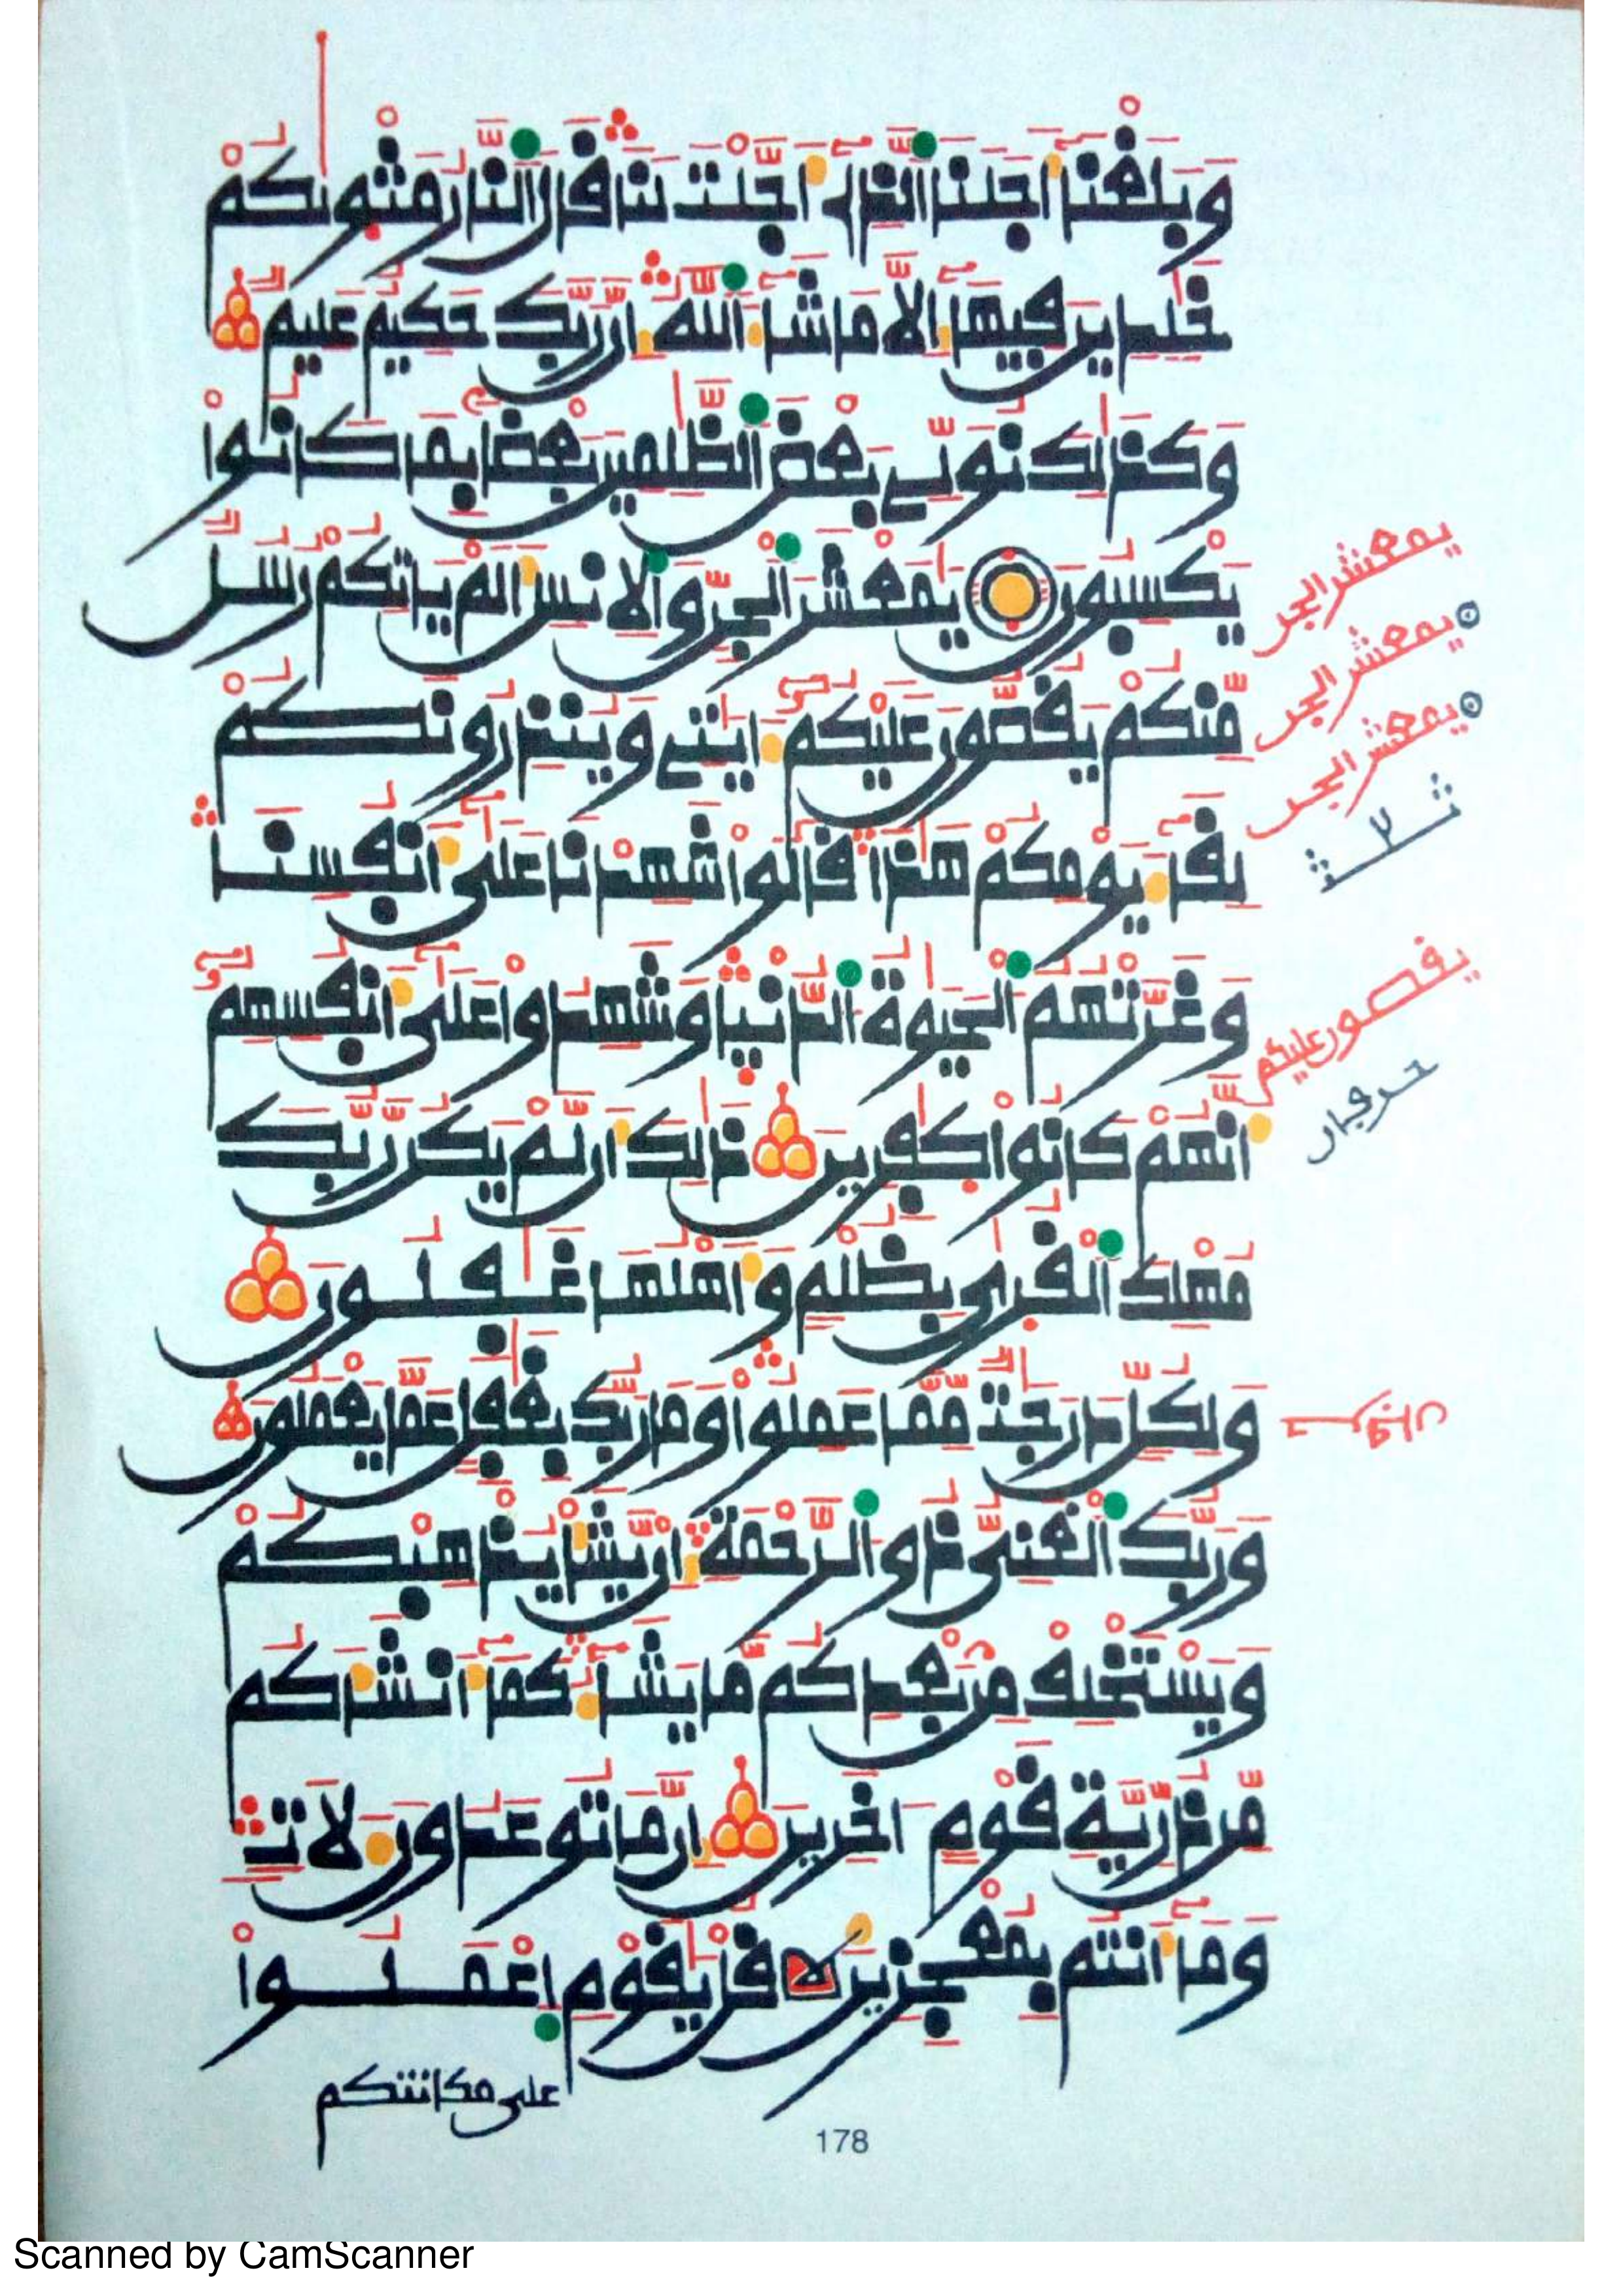 وَبَلَغْنَآ أَجَلَنَا ٱلَّذِےٓ أَجَّلْتَ لَنَا قَالَ ٱلنَّارُ مَثْوٮٰكُمْ
خَٰلِدِينَ فِيهَآ إِلَّا مَا شَآءَ ٱللَّهُ إِنَّ رَبَّكَ حَكِيمٌ عَلِيمٌ
وَكَذَٰلِكَ نُوَلِّے بَعْضَ ٱلظَّٰلِمِينَ بَعْضًا بِمَا كَانُوا۟
يَكْسِبُونَ يَٰمَعْشَرَ ٱلْجِنِّ وَٱلْإِنسِ أَلَمْ يَاتِكُمْ رُسُلٌ
مِّنكُمْ يَقُصُّونَ عَلَيْكُمُۥٓ ءَايَٰتِے وَيُنذِرُونَكُمْ
لِقَآءَ يَوْمِكُمْ هَٰذَا قَالُوا۟ شَهِدْنَا عَلَىٰٓ أَنفُسِنَا
وَغَرَّتْهُمُ ٱلْحَيَوٰةُ ٱلدُّنْيَا وَشَهِدُوا۟ عَلَىٰٓ أَنفُسِهِمُۥٓ
أَنَّهُمْ كَانُوا۟ كَٰفِرِينَ ذَٰلِكَ أَن لَّمْ يَكُن رَّبُّكَ
مُهْلِكَ ٱلْقُرَىٰ بِظُلْمٍ وَأَهْلُهَا غَٰفِلُونَ
وَلِكُلٍّ دَرَجَٰتٌ مِّمَّا عَمِلُوا۟ وَمَا رَبُّكَ بِغَٰفِلٍ عَمَّا يَعْمَلُونَ
وَرَبُّكَ ٱلْغَنِىُّ ذُو ٱلرَّحْمَةِ إِن يَّشَأْ يُذْهِبْكُمْ
وَيَسْتَخْلِفْ مِنۢ بَعْدِكُم مَّا يَشَآءُ كَمَآ أَنشَأَكُم
مِّن ذُرِّيَّةِ قَوْمٍ ءَاخَرِينَ إِنَّ مَا تُوعَدُونَ لَأٓتٍ
وَمَآ أَنتُم بِمُعْجِزِينَ قُلْ يَٰقَوْمِ ٱعْمَلُوا۟
على مكانتكم
يمعشر الجن
يمعشر الجن
يمعشر الجن
يقصون عليكم
178
Scanned by CamScanner